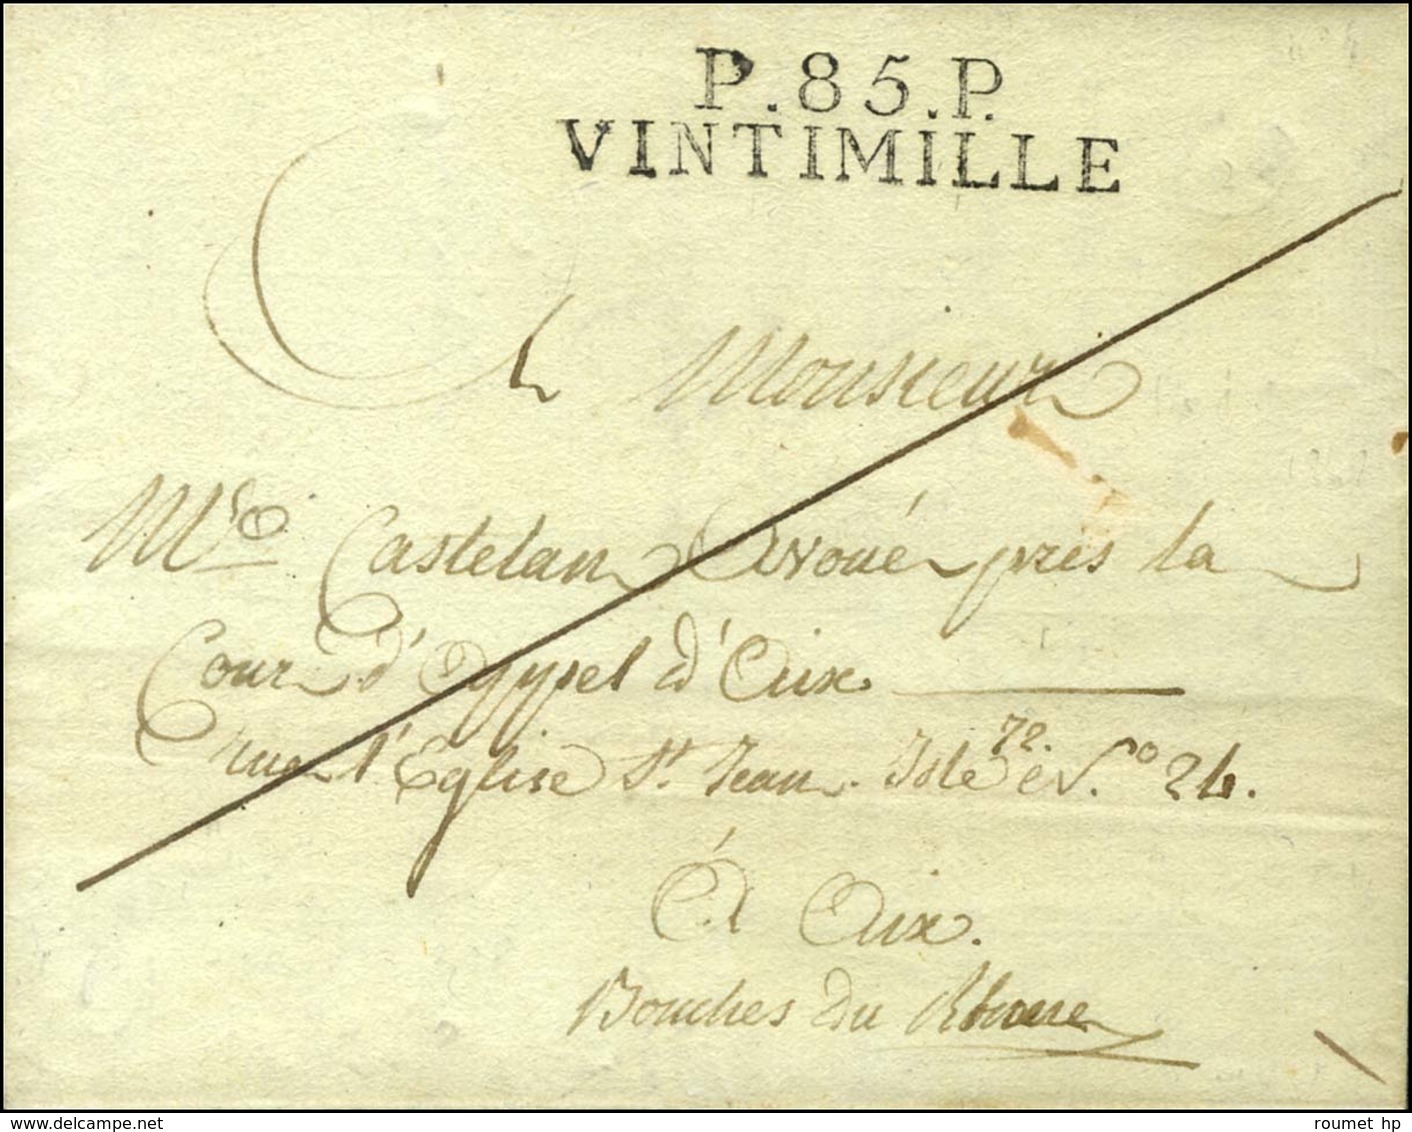 P.85.P.
VINTIMILLE
A Monsieur
Castelan Avoué près la
Cour d'Appel d'Aix
rue l'Eglise St. Jean. Isle 72. N.º 24.
À Aix.
Bouches du Rhone
delcampe.net
roumet hp